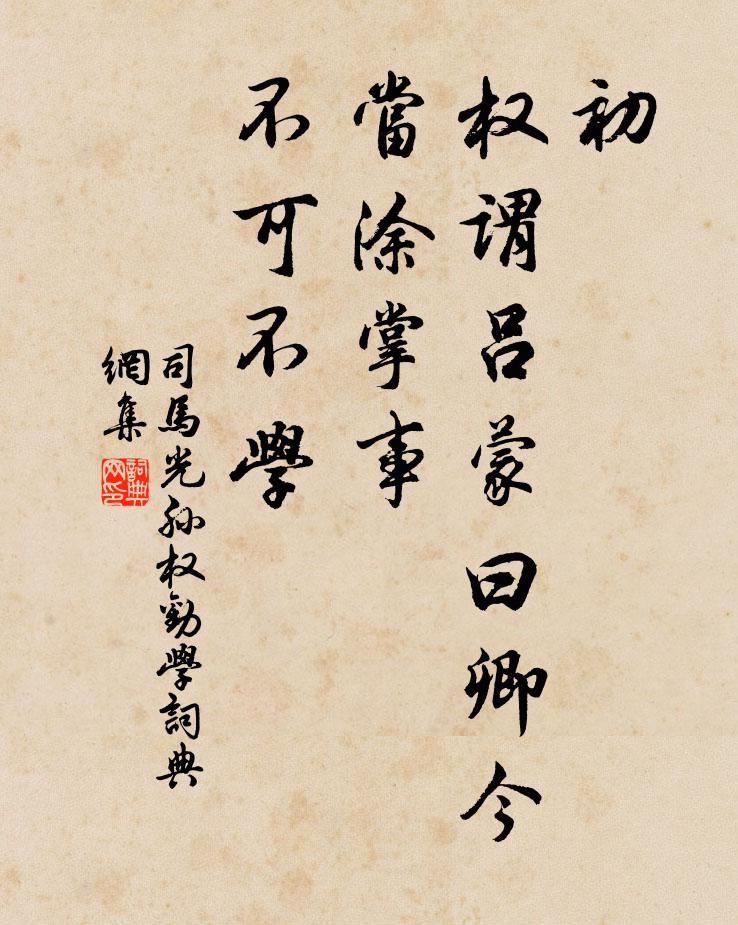 初
权謂呂蒙曰卿今
當涂掌事
不可不學
司馬光孙权勸學詞典
網集
詞典
网印